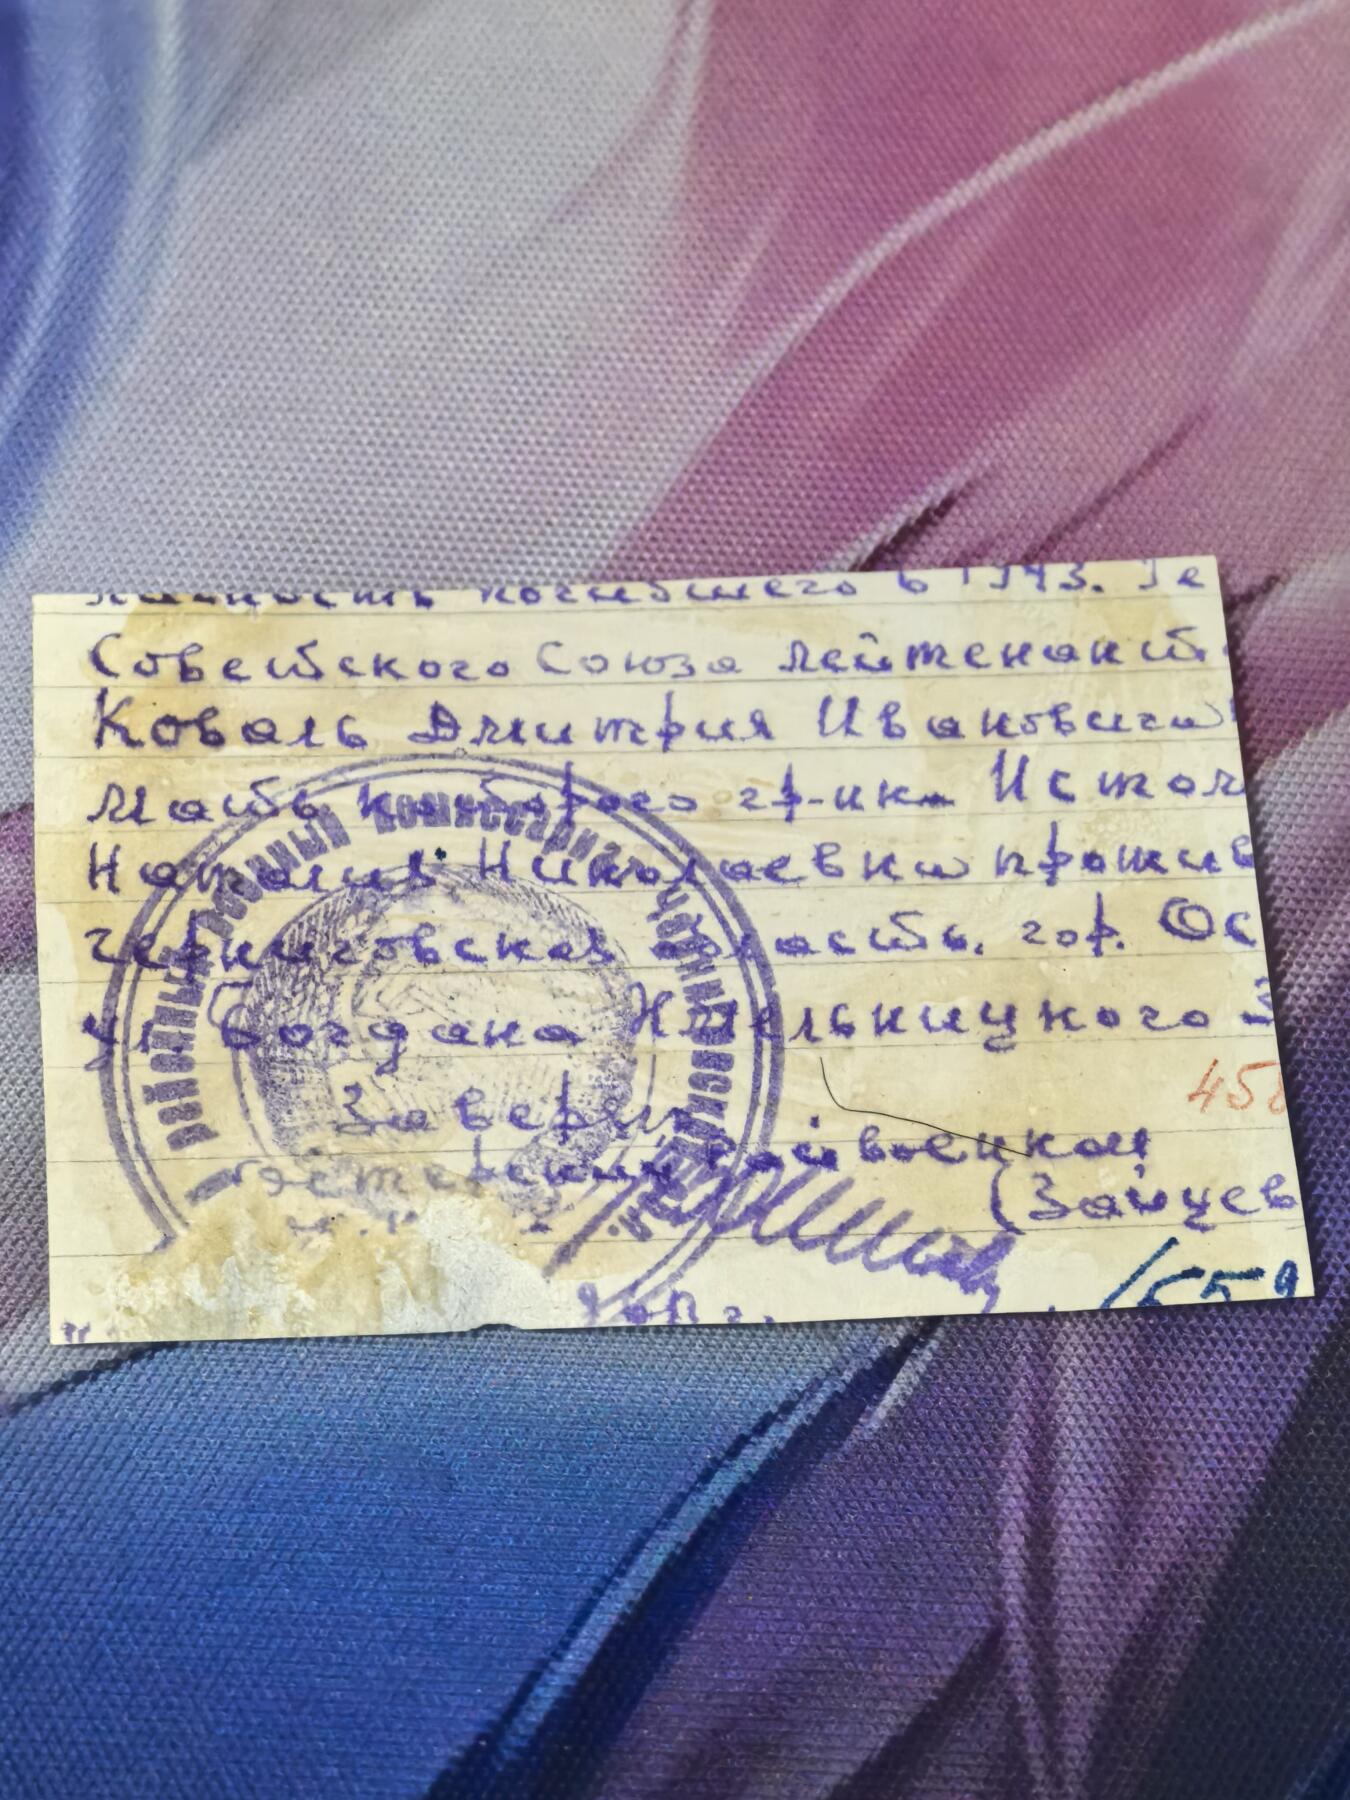 личность погибшего в 1943. Ге
Советского Союза лейтенант
Коваль Дмитрия Ивановича
Мать которого гр-ка Истом
Наталия Николаевна прожив
Черниговская область. гор. Ос
ул Богдана Хмельницкого 3
458
Заверил
Остерский райвоенком
(Зайцев
1559
районный военный комиссариат Черниговской